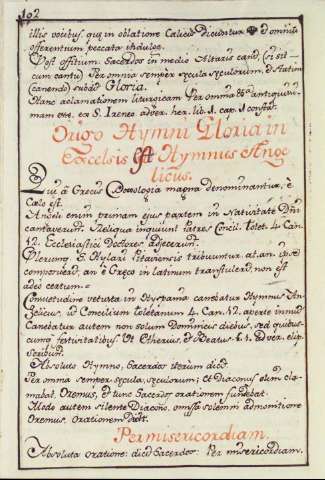 102
illis vocibus, quæ in oblatione Calicis dicuntur ✠ Domine
offerentium peccata indulge.
Post offitium Sacerdos in medio Altaris canit, (si sit
cum cantu) Per omnia semper secula seculorum, et statim
(canendo) subdit Gloria.
Hanc aclamationem liturgicam Per omnia & antiquissi-
mam esse, ex S. Ireneo adver. her. lib. 1. cap. 1 constat.
Origo Hymni Gloria in
Excelsis est Hymnus Ange
licus.
Qui à Grecis Doxologia magna denominantur, è
Cælo est.
Angeli enim primam ejus partem in Nativitate Dñi
cantaverunt. Reliqua inquiunt Patres Concil. Tolet. 4 Can.
12. Ecclesiastici Doctores adjecerunt.
Plerumq S. Hylari Pitaviensis tribuuntur. at. an. ipse
composuerit, an è Greco in latinum transtulerit, non est
adeo certum.
Consuetudine vetusta in Hyspania canebatur Hymnus An-
gelicus, ut Concilium toletanum 4. Can. 12. aperte innuit
Canebatur autem non solum Dominicis diebus, sed quibus-
cumq festivitatibus. Ut Etherius, et Beatus L. 1. adver. elip.
scribunt.
Absoluto Hymno, Sacerdos iterum dicit
Per omnia semper secula, seculorum; et Diaconus olim cla-
mabat. Oremus, et tunc Sacerdos orationem fundebat.
Modo autem silente Diacono, omissa solemni admonitione
Oremus. Orationem
Per misericordiam.
Absoluta oratione: dicit Sacerdos: Per misericordiam.